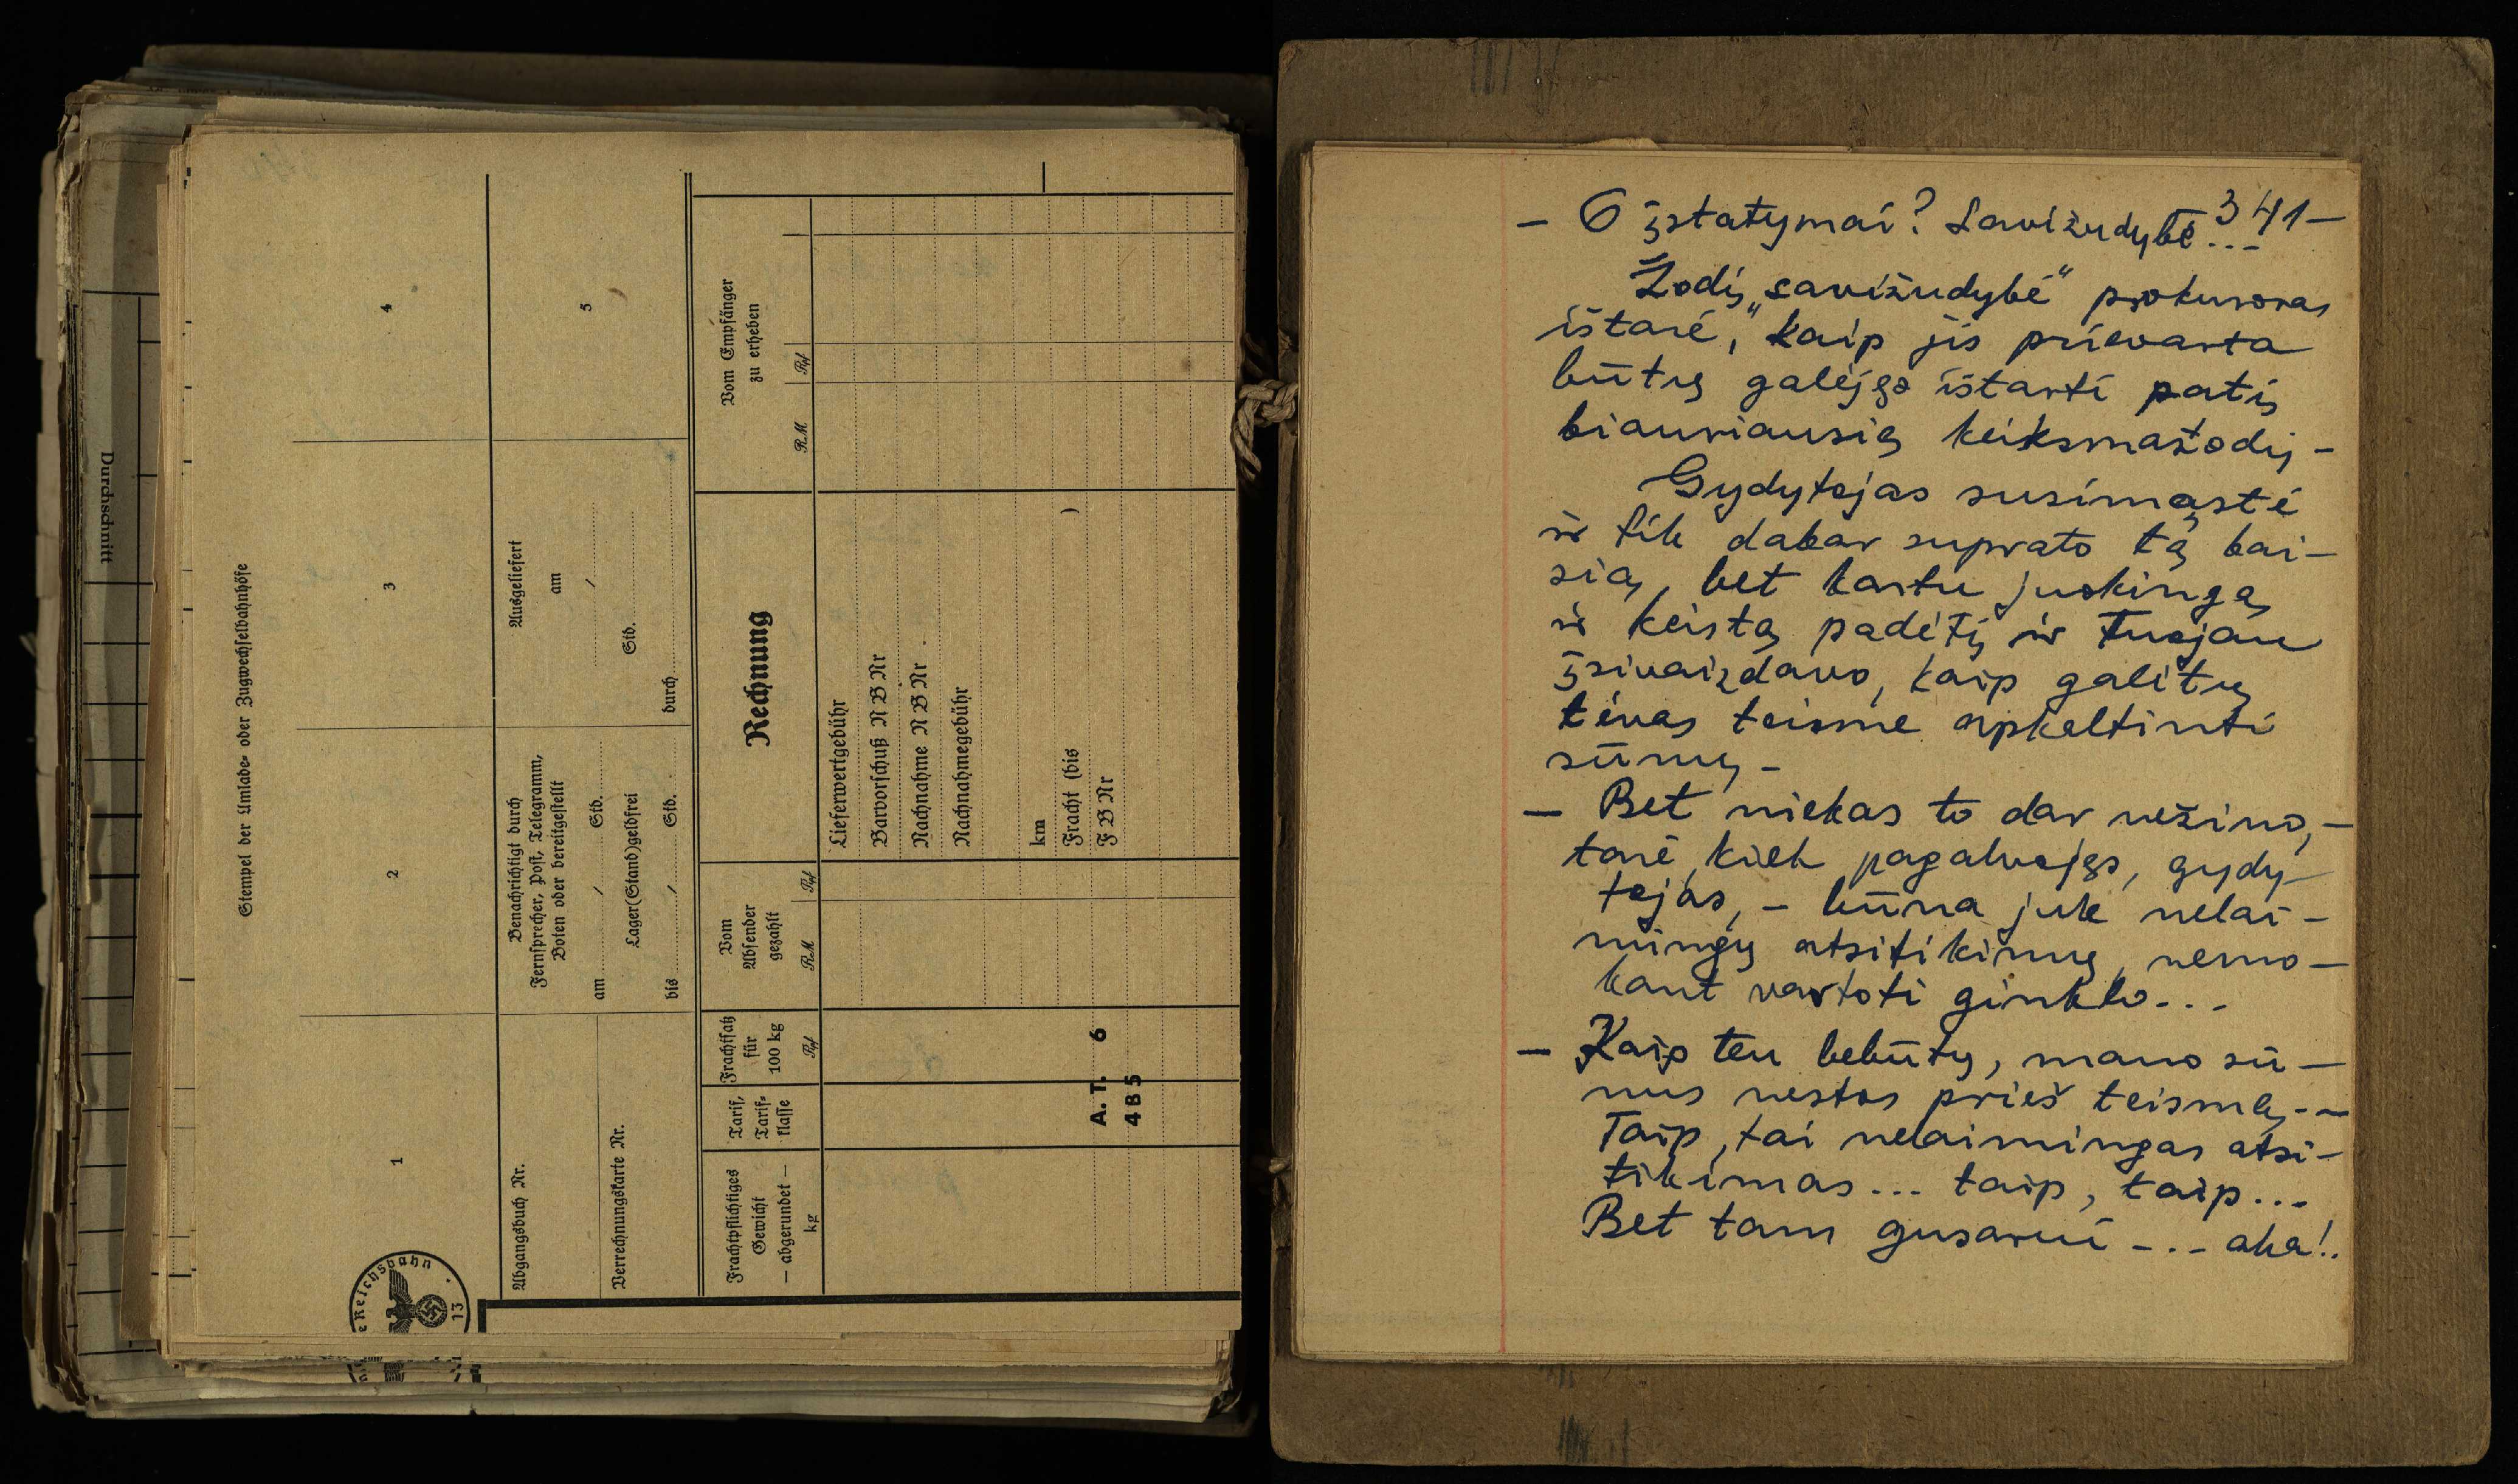 Durchschnitt
Stempel der Umlade- oder Zugwechselbahnhöfe
1
2
3
4
5
Abgangsbuch Nr.
Verrechnungskarte Nr.
Benachrichtigt durch
Fernsprecher, Post, Telegramm,
Boten oder bereitgestellt
am / Std.
Lager(Stand)geldfrei
bis / Std.
Ausgeliefert
am
/
Std.
durch
Reichsbahn
13
Frachtpflichtiges
Gewicht
— abgerundet —
kg
Tarif,
Tarif-
klasse
Frachtsatz
für
100 kg
Rpf
Vom
Absender
gezahlt
RM Rpf
Rechnung
Vom Empfänger
zu erheben
RM Rpf
Lieferwertgebühr
Barvorschuß NB Nr
Nachnahme NB Nr .
Nachnahmegebühr
km
Fracht (bis )
FB Nr
A. T. 6
4 B 5
341–
– O įstatymai? Savižudybė...
Žodį „savižudybė" prokuroras
ištarė, kaip jis prievarta
būtų galėjęs ištarti patį
biauriausią keiksmažodį –
Gydytojas susimąstė
ir tik dabar suprato tą bai-
sią, bet kartu juokingą
ir keistą padėtį ir tuojau
įsivaizdavo, kaip galėtų
tėvas teisme apkaltinti
sūnų –
– Bet niekas to dar nežino, –
tarė, kiek pagalvojęs, gydy-
tojas, – būna juk nelai-
mingų atsitikimų, nemo-
kant vartoti ginklo...
– Kaip ten bebūtų, mano sū-
nus nestos prieš teismą. –
Taip, tai nelaimingas atsi-
tikimas... taip, taip...
Bet tam gusarui –.– aha!..